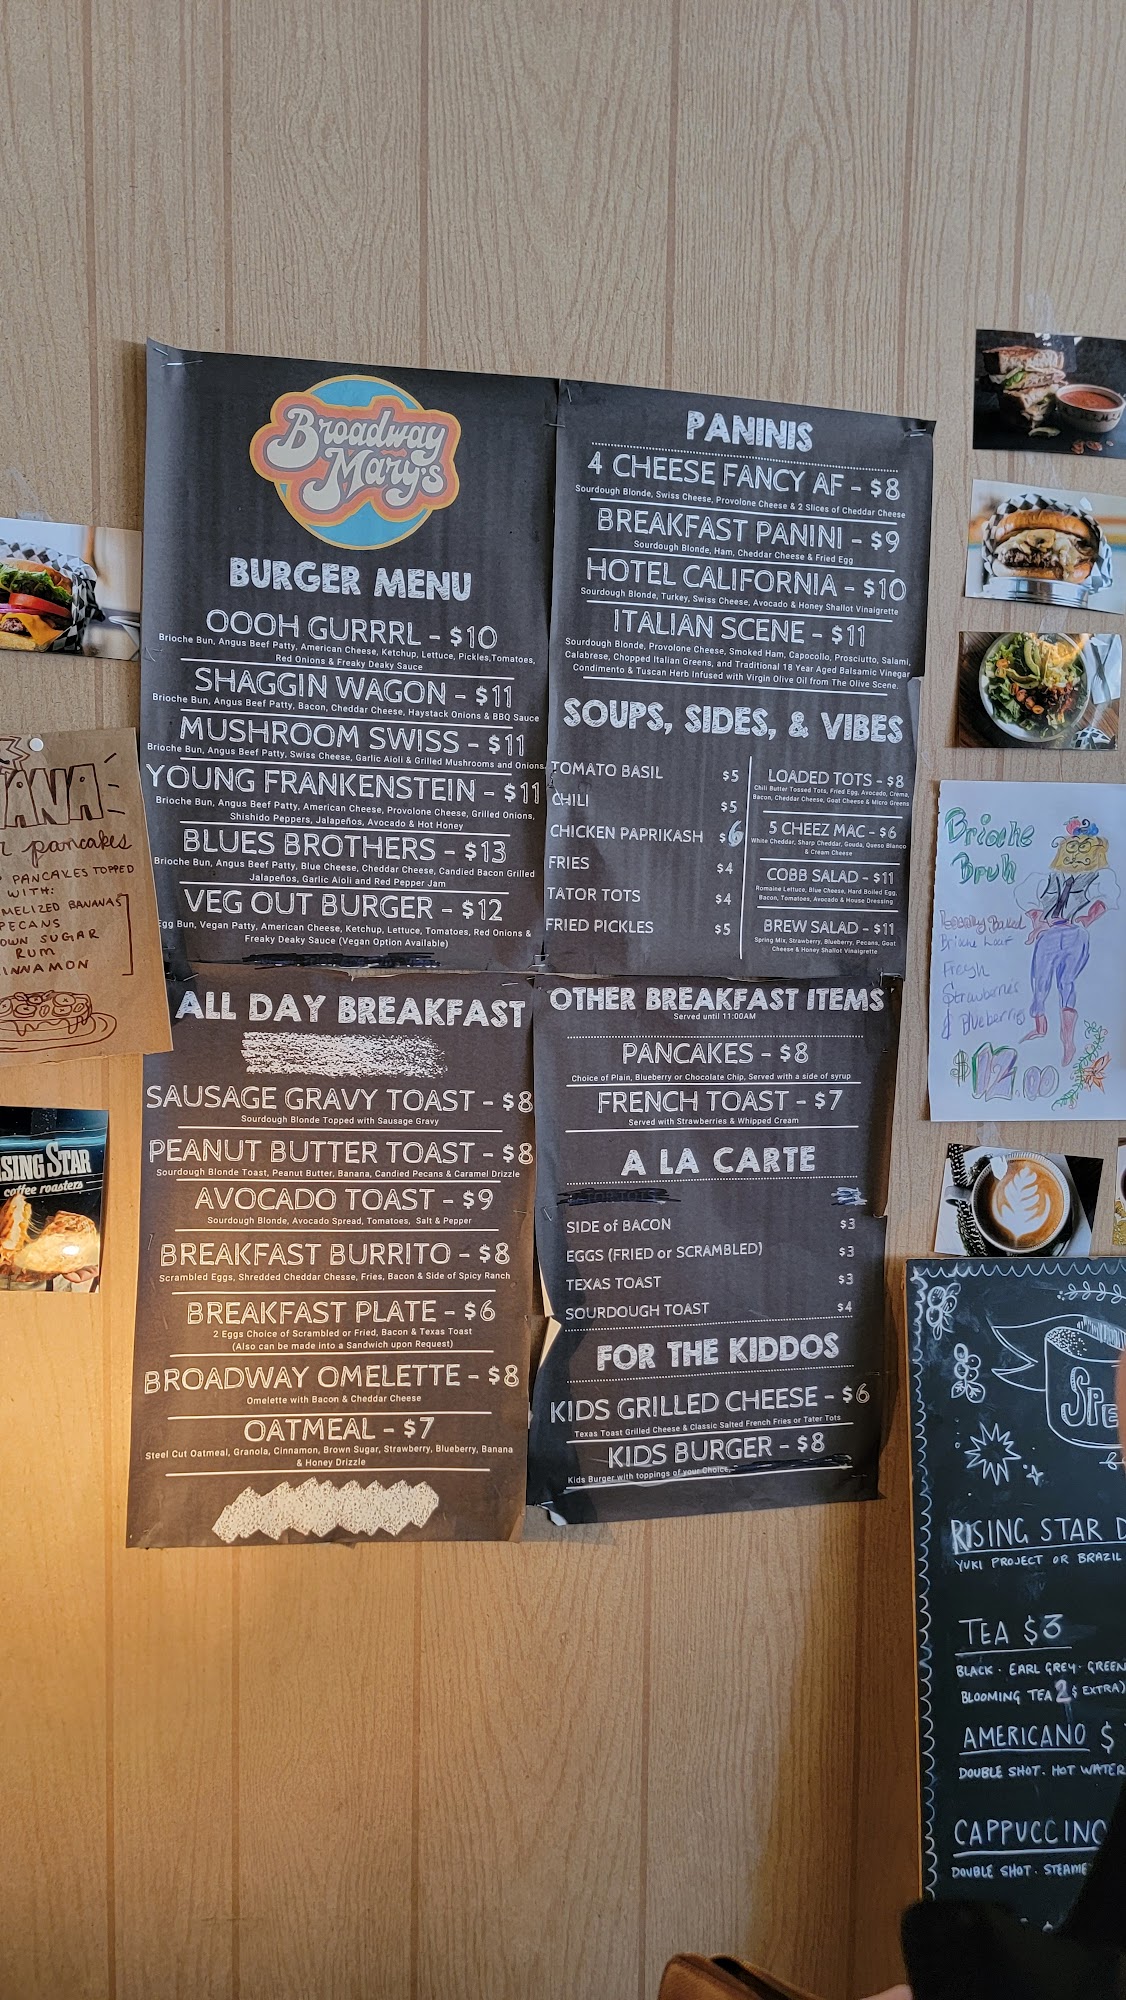 Broadway
Mary's
BURGER MENU
OOOH GURRRL - $10
Brioche Bun, Angus Beef Patty, American Cheese, Ketchup, Lettuce, Pickles,Tomatoes,
Red Onions & Freaky Deaky Sauce
SHAGGIN WAGON - $11
Brioche Bun, Angus Beef Patty, Bacon, Cheddar Cheese, Haystack Onions & BBQ Sauce
MUSHROOM SWISS - $11
Brioche Bun, Angus Beef Patty, Swiss Cheese, Garlic Aioli & Grilled Mushrooms and Onions
YOUNG FRANKENSTEIN - $11
Brioche Bun, Angus Beef Patty, American Cheese, Provolone Cheese, Grilled Onions,
Shishido Peppers, Jalapeños, Avocado & Hot Honey
BLUES BROTHERS - $13
Brioche Bun, Angus Beef Patty, Blue Cheese, Cheddar Cheese, Candied Bacon Grilled
Jalapeños, Garlic Aioli and Red Pepper Jam
VEG OUT BURGER - $12
Egg Bun, Vegan Patty, American Cheese, Ketchup, Lettuce, Tomatoes, Red Onions &
Freaky Deaky Sauce (Vegan Option Available)
PANINIS
4 CHEESE FANCY AF - $8
Sourdough Blonde, Swiss Cheese, Provolone Cheese & 2 Slices of Cheddar Cheese
BREAKFAST PANINI - $9
Sourdough Blonde, Ham, Cheddar Cheese & Fried Egg
HOTEL CALIFORNIA - $10
Sourdough Blonde, Turkey, Swiss Cheese, Avocado & Honey Shallot Vinaigrette
ITALIAN SCENE - $11
Sourdough Blonde, Provolone Cheese, Smoked Ham, Capocollo, Prosciutto, Salami,
Calabrese, Chopped Italian Greens, and Traditional 18 Year Aged Balsamic Vinegar
Condimento & Tuscan Herb Infused with Virgin Olive Oil from The Olive Scene.
SOUPS, SIDES, & VIBES
TOMATO BASIL $5
CHILI $5
CHICKEN PAPRIKASH $6
FRIES $4
TATOR TOTS $4
FRIED PICKLES $5
LOADED TOTS - $8
Chili Butter Tossed Tots, Fried Egg, Avocado, Crema,
Bacon, Cheddar Cheese, Goat Cheese & Micro Greens
5 CHEEZ MAC - $6
White Cheddar, Sharp Cheddar, Gouda, Queso Blanco
& Cream Cheese
COBB SALAD - $11
Romaine Lettuce, Blue Cheese, Hard Boiled Egg,
Bacon, Tomatoes, Avocado & House Dressing
BREW SALAD - $11
Spring Mix, Strawberry, Blueberry, Pecans, Goat
Cheese & Honey Shallot Vinaigrette
ALL DAY BREAKFAST
SAUSAGE GRAVY TOAST - $8
Sourdough Blonde Topped with Sausage Gravy
PEANUT BUTTER TOAST - $8
Sourdough Blonde Toast, Peanut Butter, Banana, Candied Pecans & Caramel Drizzle
AVOCADO TOAST - $9
Sourdough Blonde, Avocado Spread, Tomatoes, Salt & Pepper
BREAKFAST BURRITO - $8
Scrambled Eggs, Shredded Cheddar Chesse, Fries, Bacon & Side of Spicy Ranch
BREAKFAST PLATE - $6
2 Eggs Choice of Scrambled or Fried, Bacon & Texas Toast
(Also can be made into a Sandwich upon Request)
BROADWAY OMELETTE - $8
Omelette with Bacon & Cheddar Cheese
OATMEAL - $7
Steel Cut Oatmeal, Granola, Cinnamon, Brown Sugar, Strawberry, Blueberry, Banana
& Honey Drizzle
OTHER BREAKFAST ITEMS
Served until 11:00AM
PANCAKES - $8
Choice of Plain, Blueberry or Chocolate Chip, Served with a side of syrup
FRENCH TOAST - $7
Served with Strawberries & Whipped Cream
A LA CARTE
SIDE of BACON $3
EGGS (FRIED or SCRAMBLED) $3
TEXAS TOAST $3
SOURDOUGH TOAST $4
FOR THE KIDDOS
KIDS GRILLED CHEESE - $6
Texas Toast Grilled Cheese & Classic Salted French Fries or Tater Tots
KIDS BURGER - $8
Kids Burger with toppings of your Choice,
ANA
pancakes
PANCAKES TOPPED
WITH:
MELIZED BANANAS
PECANS
OWN SUGAR
RUM
INNAMON
SING STAR
coffee roasters
Brioche
Bruh
Locally Baked
Brioche Loaf
Fresh
Strawberries
& Blueberries
$12.00
SPE
RISING STAR D
YUKI PROJECT OR BRAZIL
TEA $3
BLACK · EARL GREY · GREEN
BLOOMING TEA 2$ EXTRA)
AMERICANO $
DOUBLE SHOT · HOT WATER
CAPPUCCINO
DOUBLE SHOT · STEAME